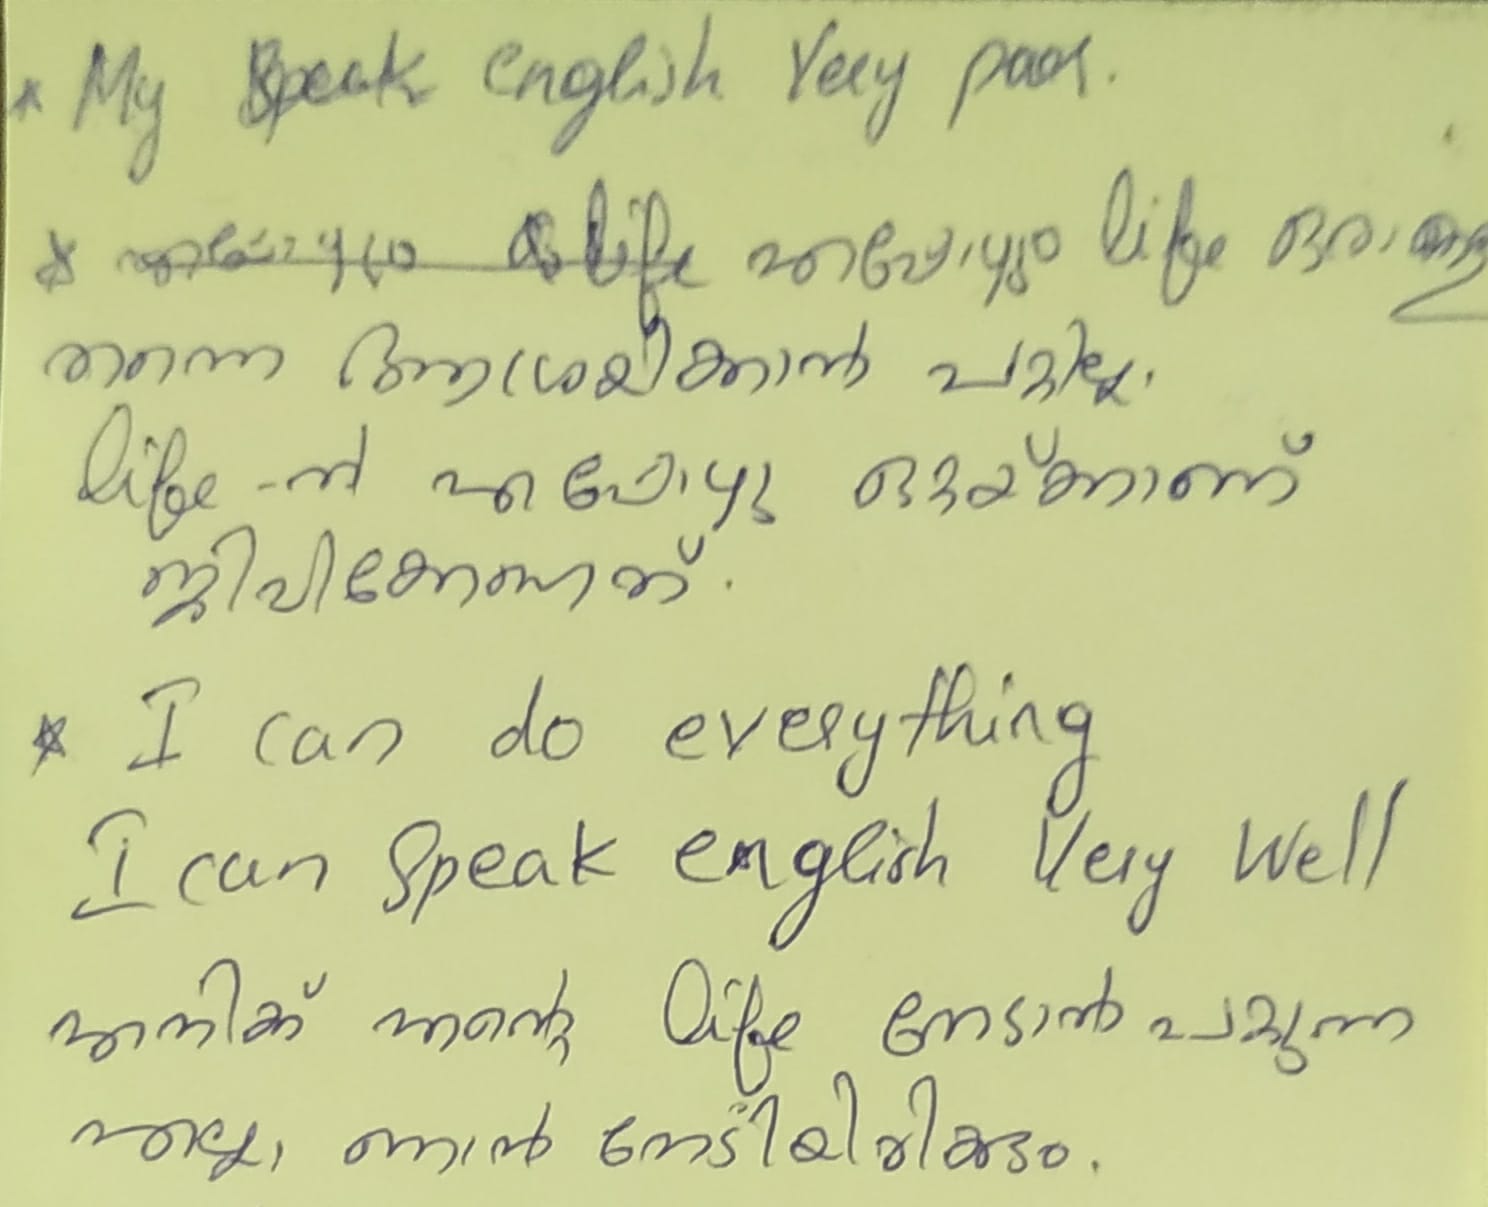 * My Speak english Very poor.
* എപ്പോഴും life ഒരാളെ
തന്നെ ആശ്രയിക്കാൻ പറ്റില്ല.
life-ൽ എപ്പോഴു ഒറ്റയ്ക്കാണ്
ജീവിക്കേണ്ടത്.
* I can do everything
I can Speak english Very Well
എനിക്ക് എന്റെ life നേടാൻ പറ്റുന്ന
എല്ലാ ഞാൻ നേടിയിരിക്കും.